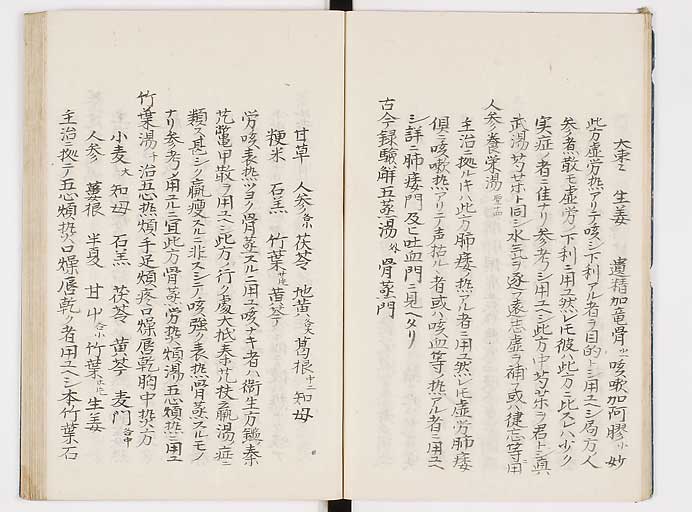 大棗 生姜 遺精加竜骨 咳嗽加阿膠 妙
此方虚労熱アリテ咳シ下利アル者ヲ目的トシ用ユヘシ局方人
参煮散モ虚労ノ下利ニ用ユ然レモ彼ハ此方ニ比スレハ少ク
実症ノ者ニ佳ナリ参考シ用ユヘシ此方中芍薬ヲ君トシ真
武湯ノ芍薬ト同シ水気ヲ逐フ遠志虚ヲ補フ或ハ健忘等ニ用
人参養栄湯
主治ニ拠ルキハ此方肺痿ノ熱アル者ニ用ユ然レモ虚労肺痿
倶ニ咳嗽熱アリテ声枯ルヽ者或ハ咳血等ノ熱アル者ニ用ユヘ
シ詳ニ肺痿門及ヒ吐血門ニ見ヘタリ
古今録験解五蒸湯 外 骨蒸門
甘草 人参 茯苓 地黄 葛根 知母
粳米 石羔 竹葉 黄芩
労咳表熱ツヨク骨蒸スルニ用ユ咳ナキ者ハ衛生方鑑ノ秦
艽鼈甲散ヲ用ユヘシ此方ノ行ク處大抵秦艽扶羸湯ノ症ニ
類ス甚シク羸痩スルニ非スシテ咳強ク表熱骨蒸スルモノ
ナリ参考メ用ユヘシ宜此方骨蒸労熱煩湯五心煩熱ニ用ユ
竹葉湯 治五心熱煩手足煩疼口燥唇乾胸中熱方
小麦 知母 石羔 茯苓 黄芩 麦門
人参 蔞根 半夏 甘艸 竹葉 生姜
主治ニ拠テ五心煩熱口燥唇乾ク者用ユヘシ本竹葉石